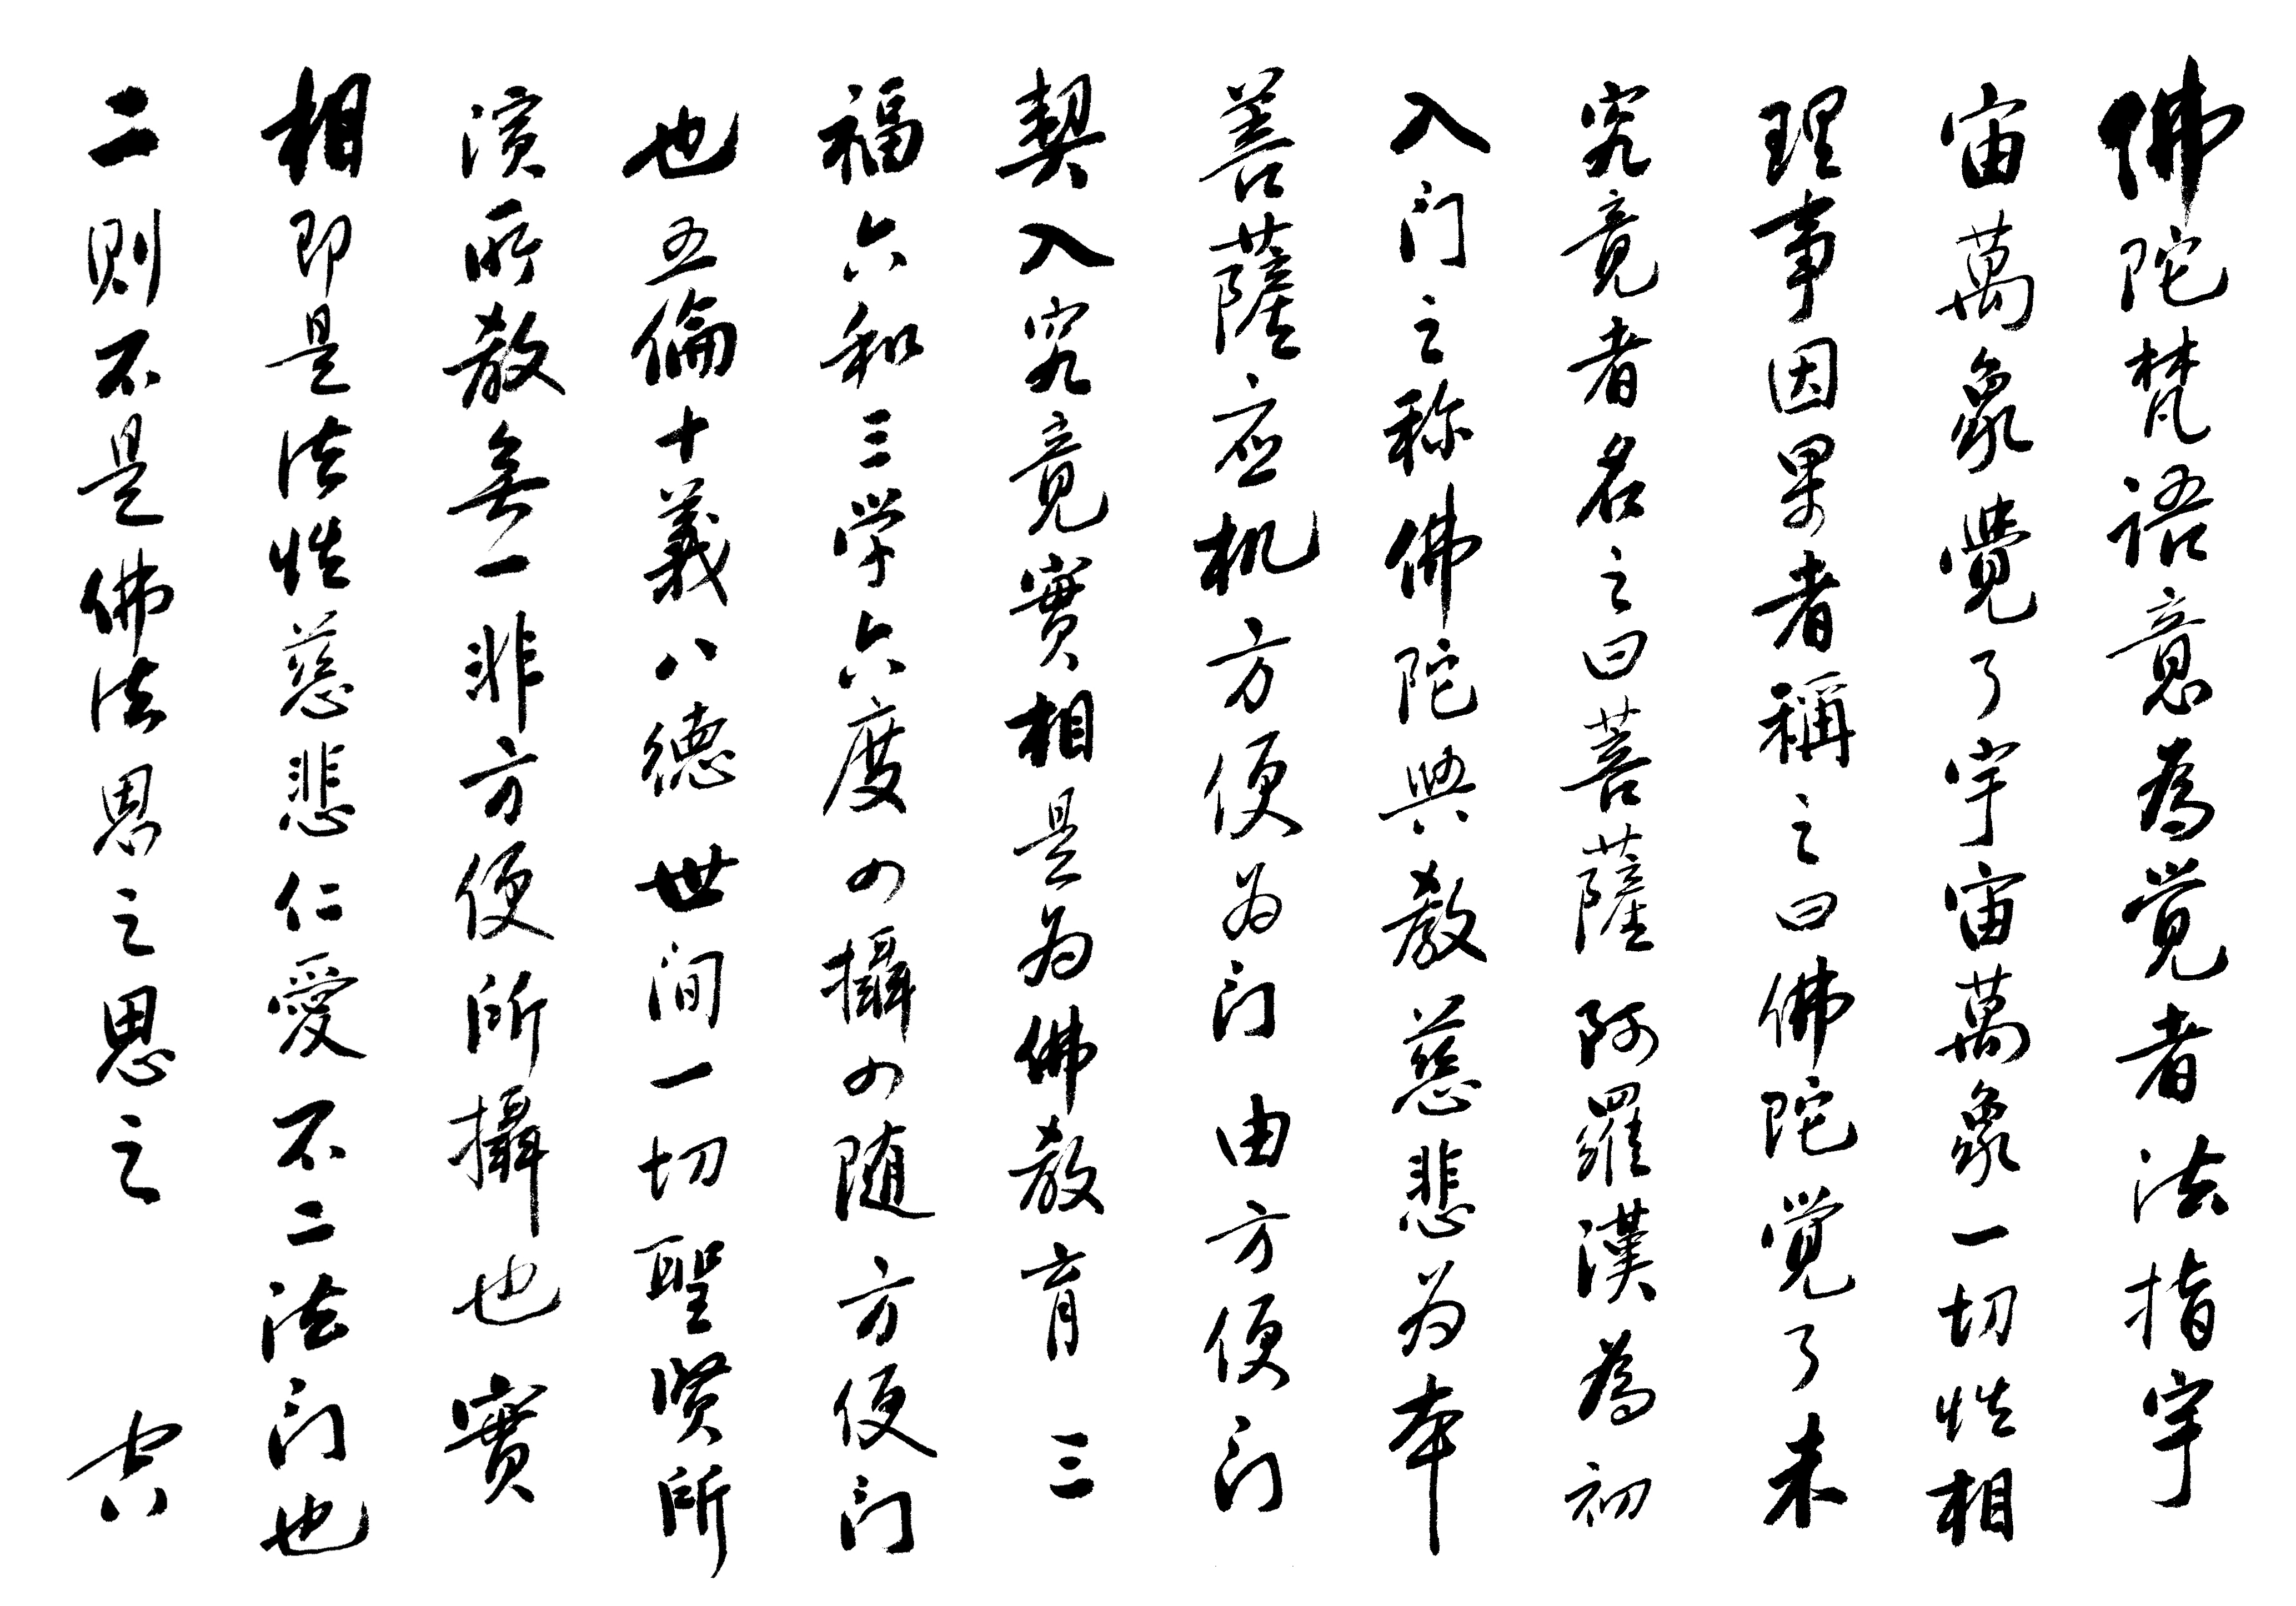 佛陀梵语意為觉者法指宇
宙萬象覺了宇宙萬象一切性相
理事因果者稱之曰佛陀覚了未
究竟者名之曰菩薩阿羅漢為初
入门之称佛陀興教慈悲为本
菩薩应机方便为门由方便门
契入究竟實相是为佛教育三
福六和三学六度四攝四随方便门
也五倫十義八德世间一切聖贤所
演所教無一非方便所攝也實
相即是法性慈悲仁愛不二法门也
二则不是佛法思之思之